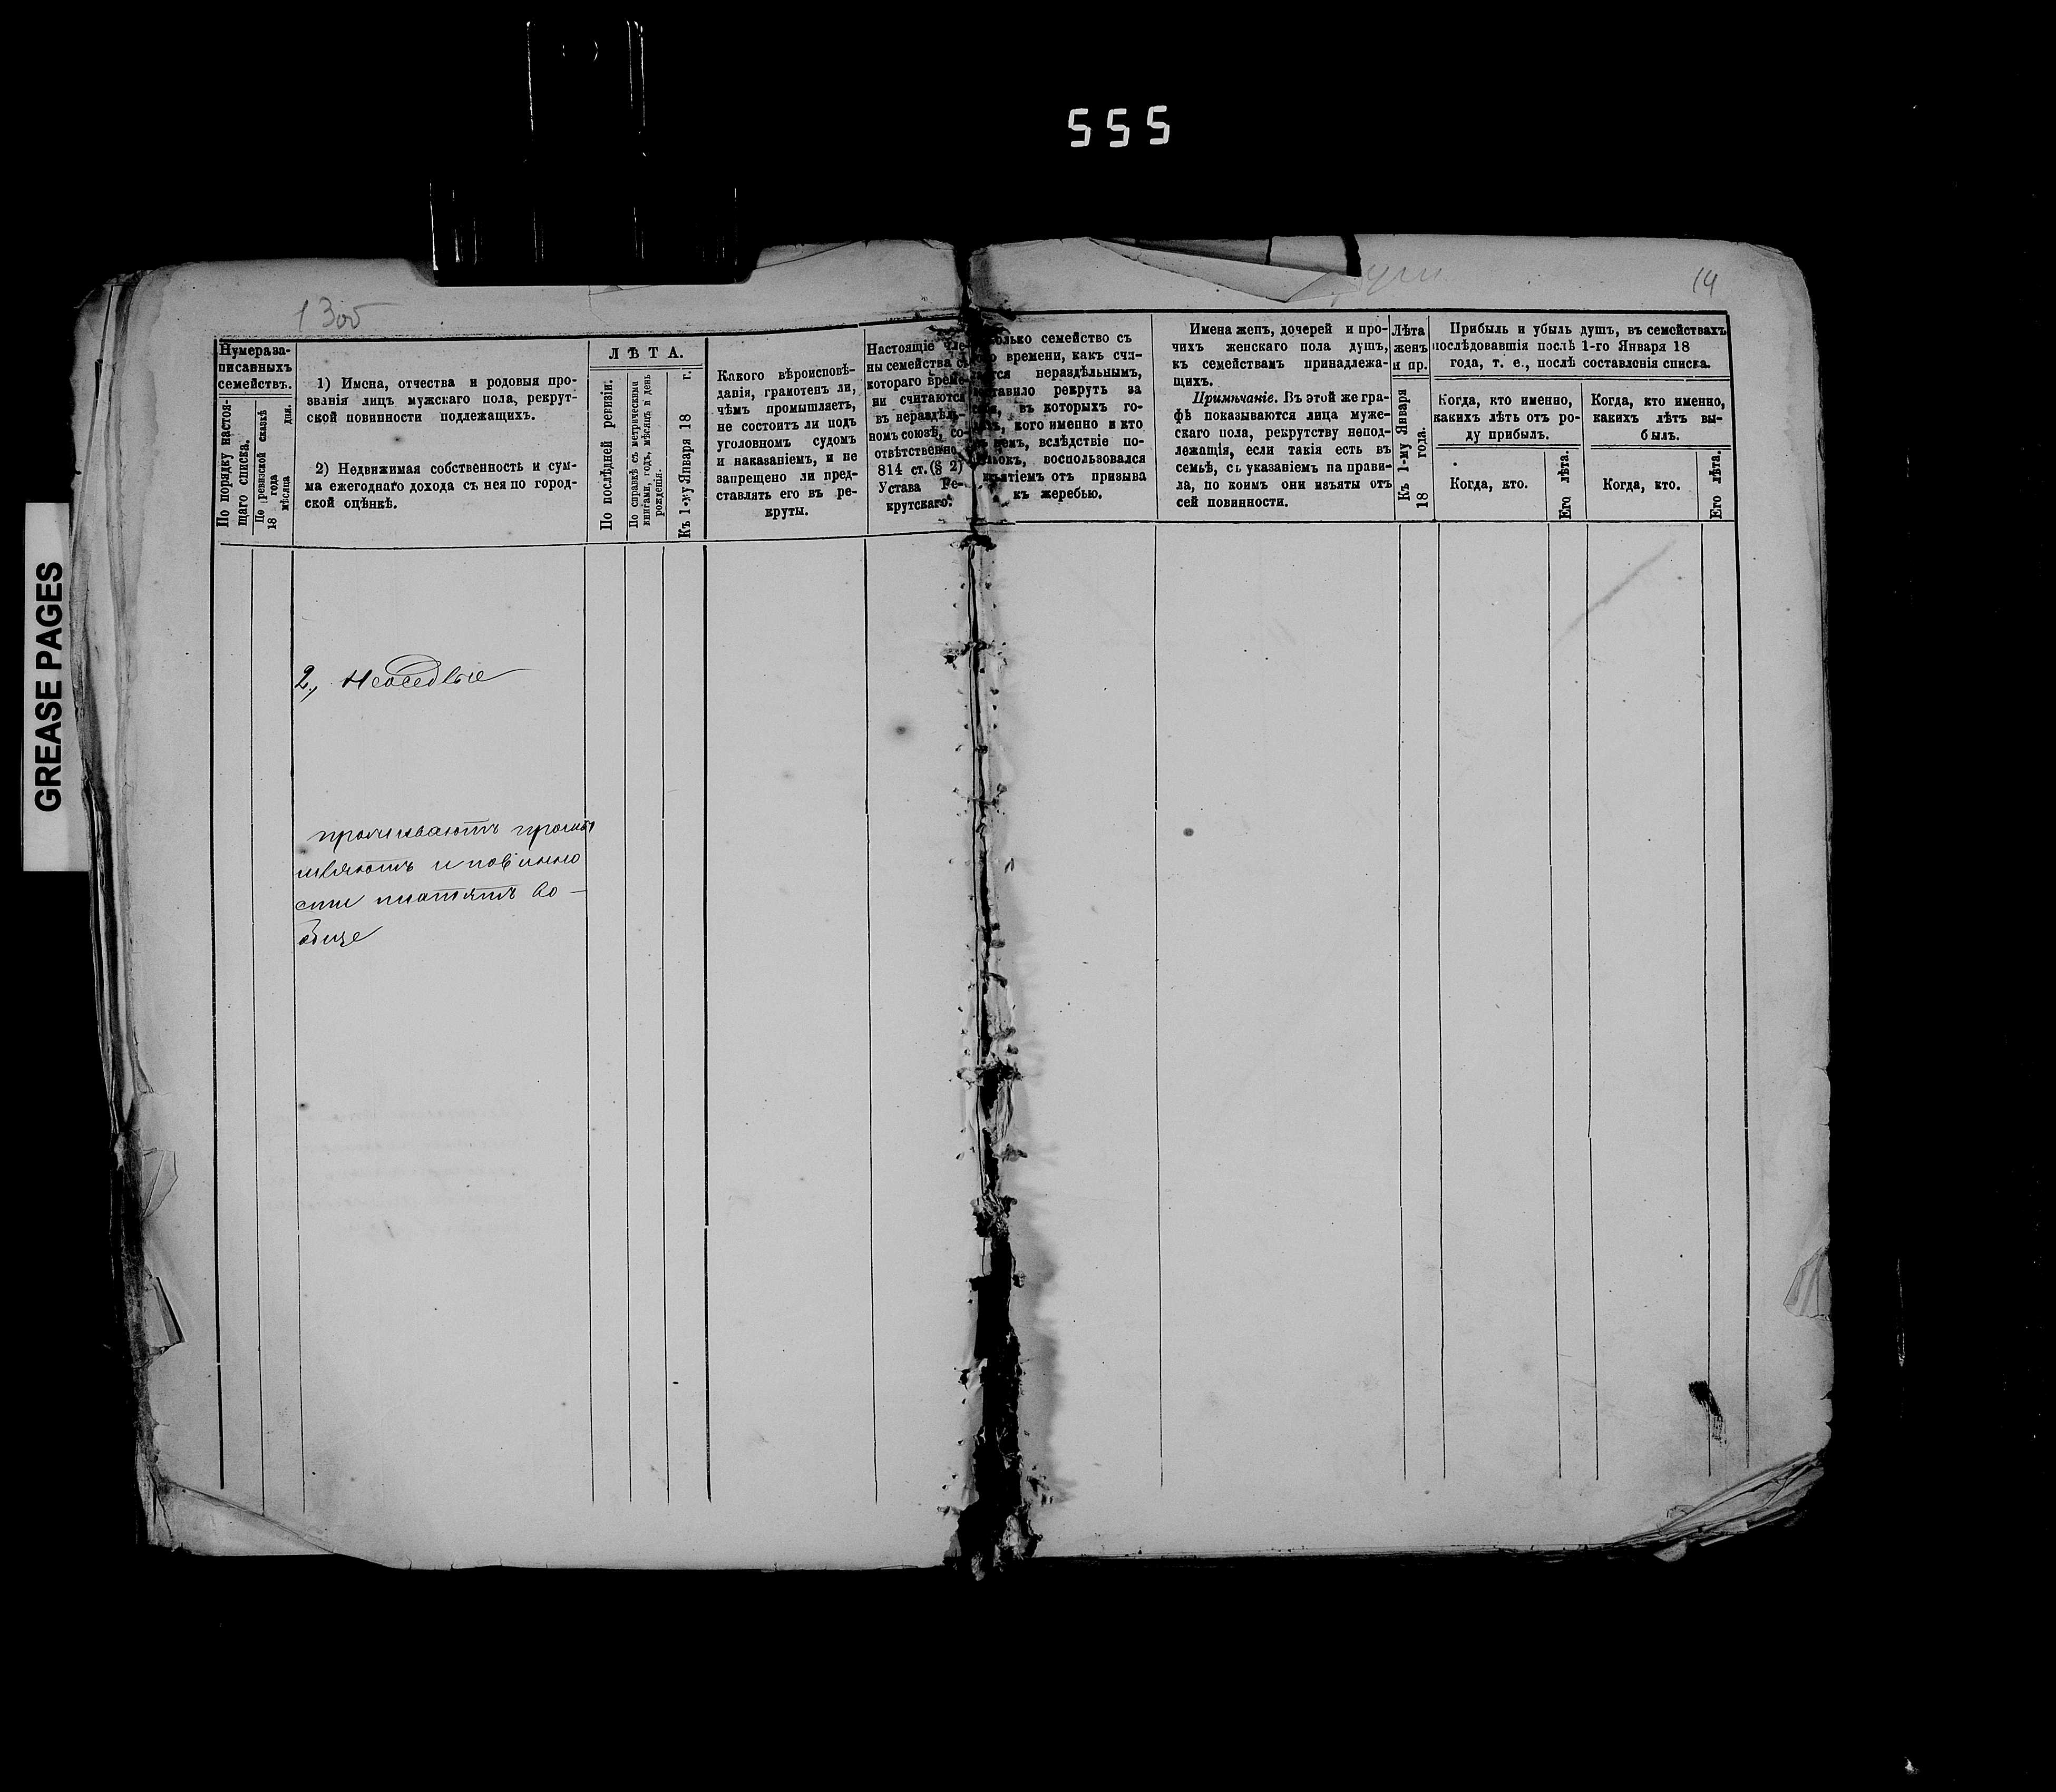 555
14
GREASE PAGES
Нумера за-
писанныхъ
семействъ.
По порядку настоя-
щаго списка.
По ревизской сказкѣ
18 года
мѣсяца дня.
1) Имена, отчества и родовыя про-
званія лицъ мужскаго пола, рекрут-
ской повинности подлежащихъ.
2) Недвижимая собственность и сум-
ма ежегоднаго дохода съ нея по город-
ской оцѣнкѣ.
ЛѢТА.
По послѣдней ревизіи.
По справкѣ съ метрическими
книгами, годъ, мѣсяцъ и день
рожденія.
Къ 1-му Января 18 г.
Какого вѣроисповѣ-
данія, грамотенъ ли,
чѣмъ промышляетъ,
не состоитъ ли подъ
уголовномъ судомъ
и наказаніемъ, и не
запрещено ли пред-
ставлять его въ ре-
круты.
Настоящіе чле-
ны семейства съ
котораго време-
ни считаются
въ нераздѣль-
номъ союзѣ, со-
отвѣтственно
814 ст. (§ 2)
Устава Ре-
крутскаго.
семейство съ
времени, какъ счи-
нераздѣльнымъ,
рекрутъ за
въ которыхъ го-
кого именно и кто
вслѣдствіе по-
воспользовался
отъ призыва
къ жеребью.
Имена женъ, дочерей и про-
чихъ женскаго пола душъ,
къ семействамъ принадлежа-
щихъ.
Примѣчаніе. Въ этой же гра-
фѣ показываются лица муже-
скаго пола, рекрутству непод-
лежащія, если такія есть въ
семьѣ, съ указаніемъ на прави-
ла, по коимъ они изъяты отъ
сей повинности.
Лѣта
женъ
и пр.
Къ 1-му Января
18 года.
Прибыль и убыль душъ, въ семействахъ
послѣдовавшія послѣ 1-го Января 18
года, т. е., послѣ составленія списка.
Когда, кто именно,
какихъ лѣтъ отъ ро-
ду прибылъ.
Когда, кто.
Его лѣта.
Когда, кто именно,
какихъ лѣтъ вы-
былъ.
Когда, кто.
Его лѣта.
2., Неоседлые
проживаютъ промы
шляютъ и повинно
сти платятъ во-
обще